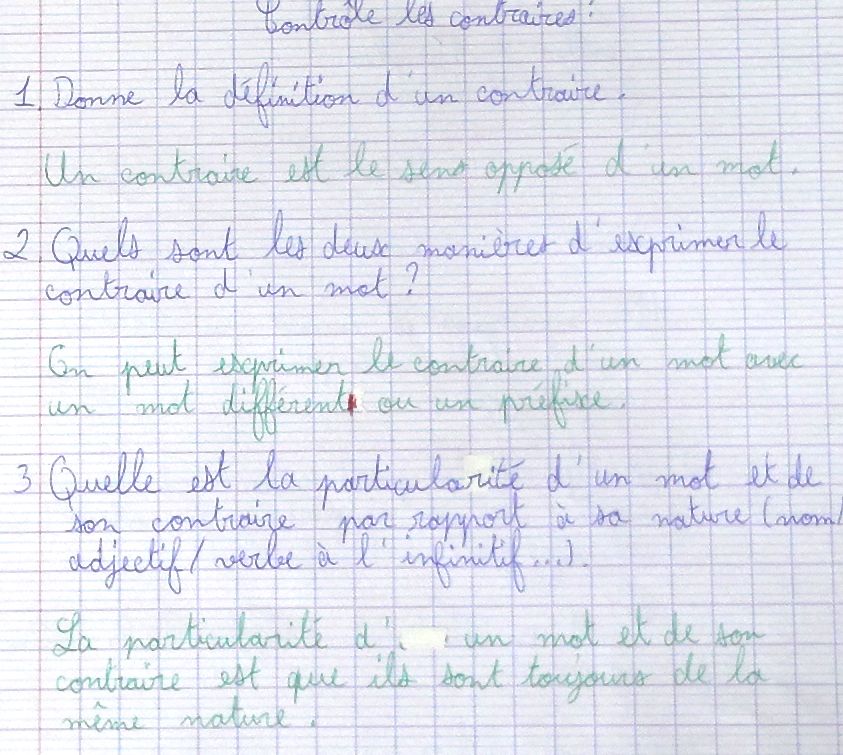 Contrôle les contraires :
1 Donne la définition d'un contraire.
Un contraire est le sens opposé d'un mot.
2 Quels sont les deux manières d'exprimer le
contraire d'un mot ?
On peut exprimer le contraire d'un mot avec
un mot différent ou un préfixe.
3 Quelle est la particularité d'un mot et de
son contraire par rapport à sa nature (nom/
adjectif/verbe à l'infinitif...).
La particularité d'un mot et de son
contraire est que ils sont toujours de la
même nature.